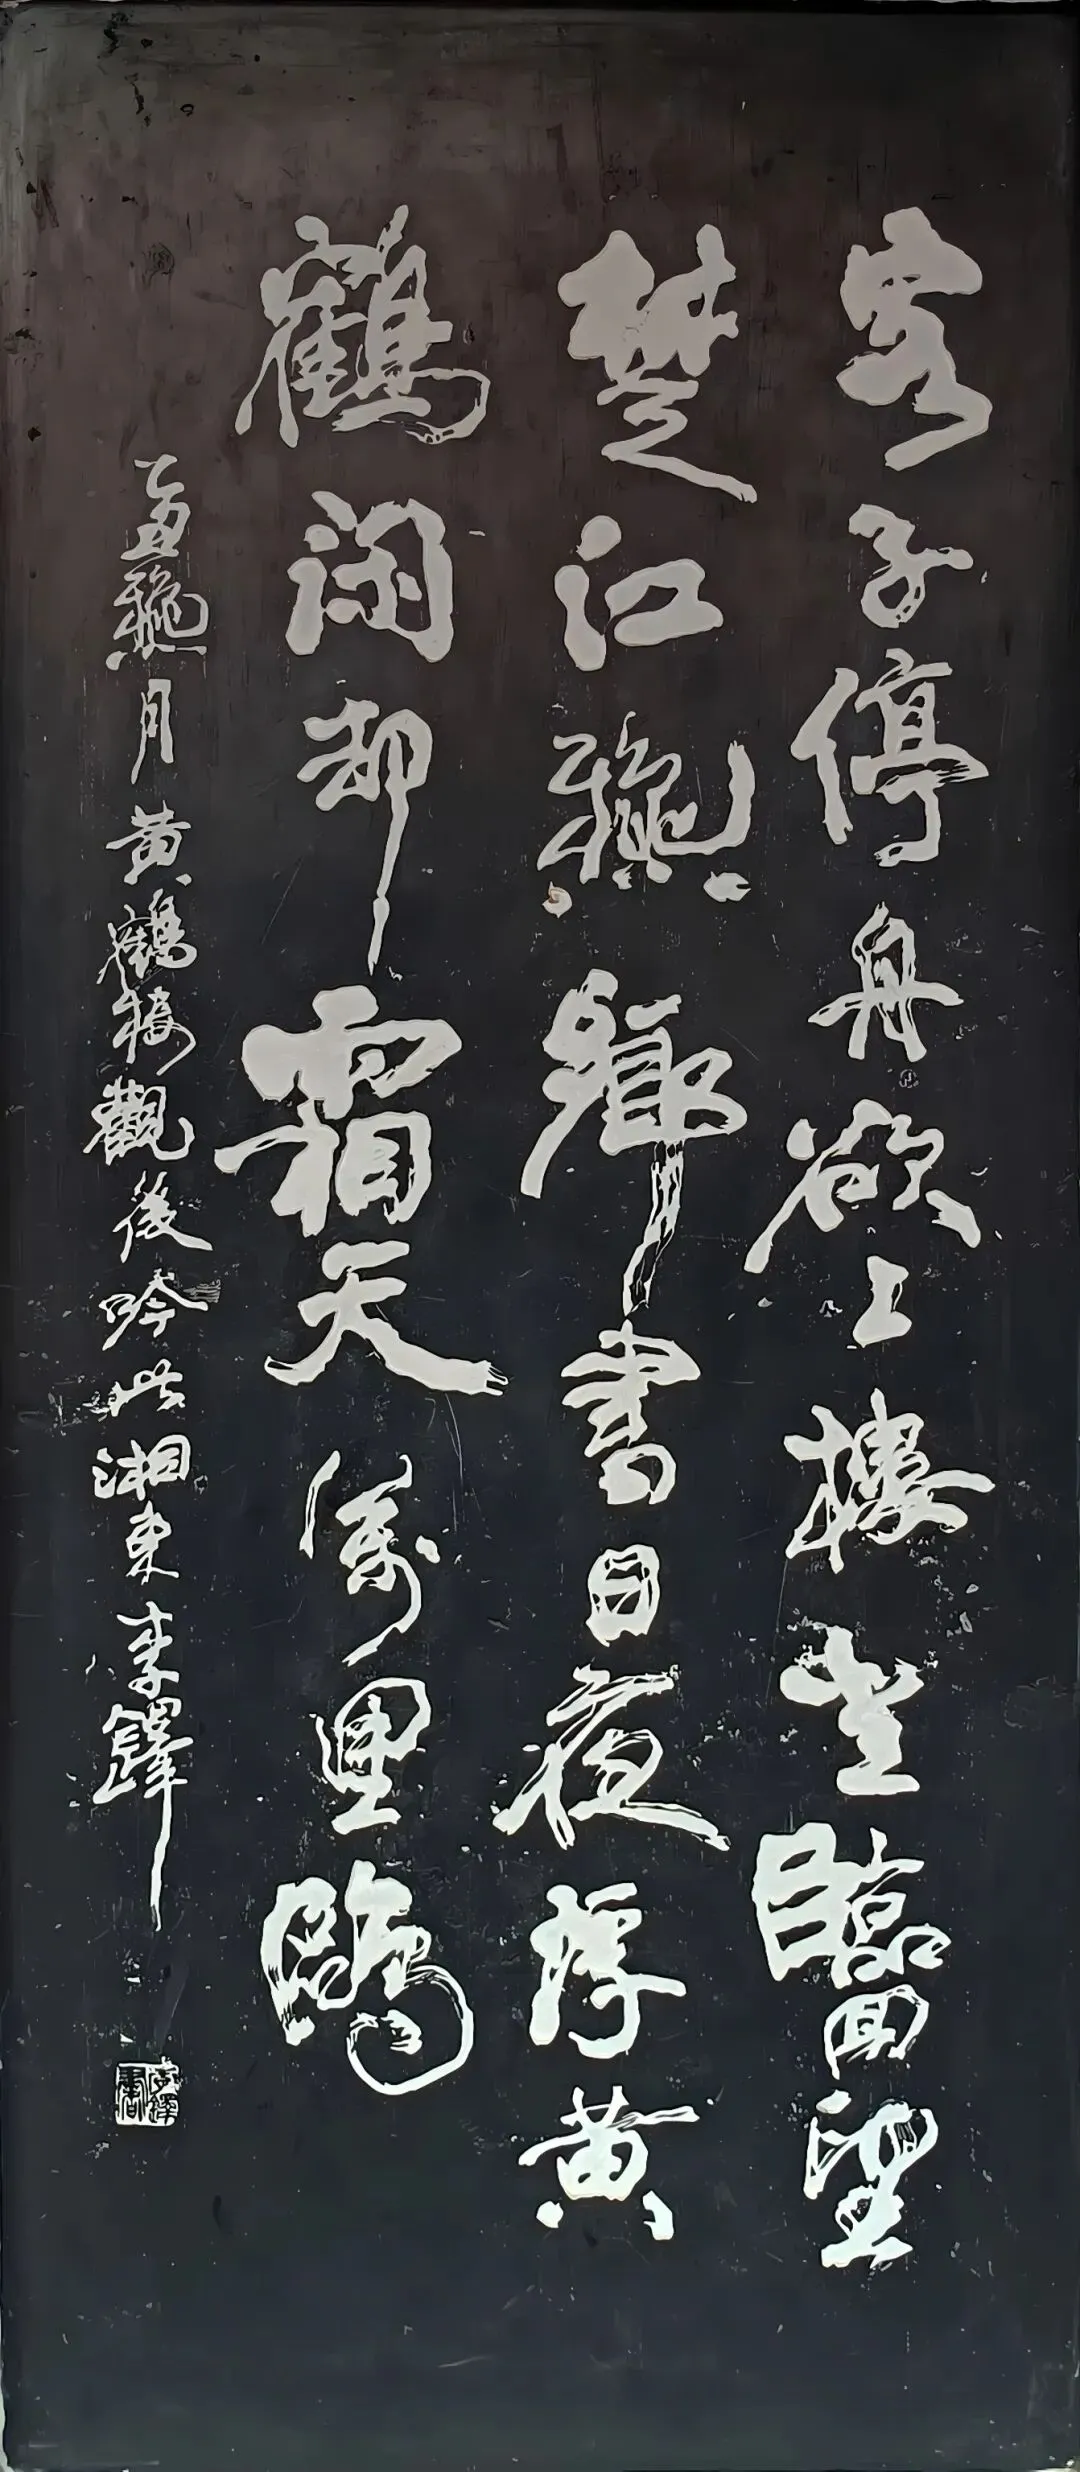 客子停舟欲上樓坐臨回望
楚江龝鄉書日夜浮黃
鶴閑却霜天萬里鷗
乙丑龝月黃鶴樓觀後吟此湘東李鐸